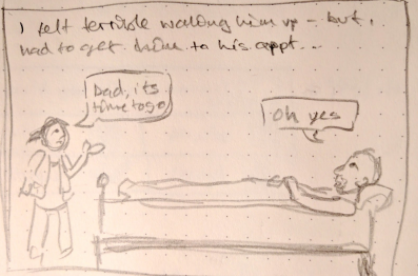 I felt terrible waking him up - but I
had to get him to his appt...
Dad, its
time to go
Oh yes